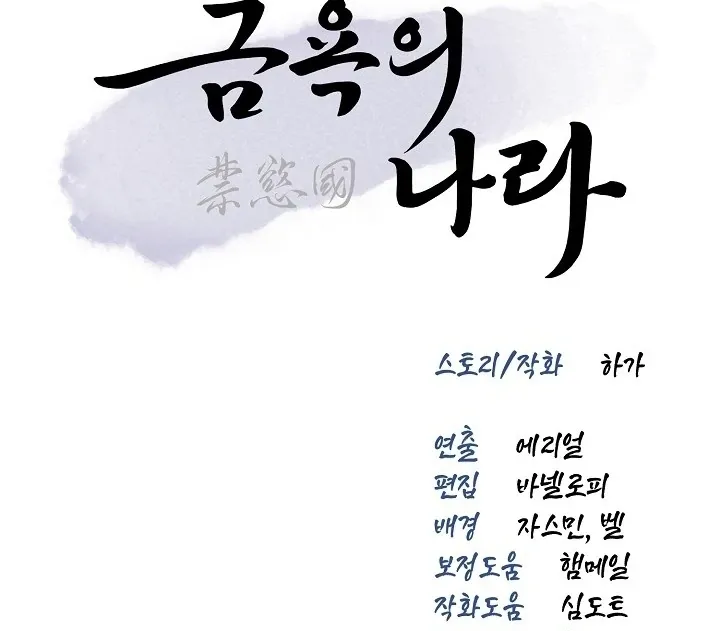 금욕의
禁慾國
나라
스토리/작화 하가
연출 에리얼
편집 바넬로피
배경 자스민, 벨
보정도움 햄메일
작화도움 심도트